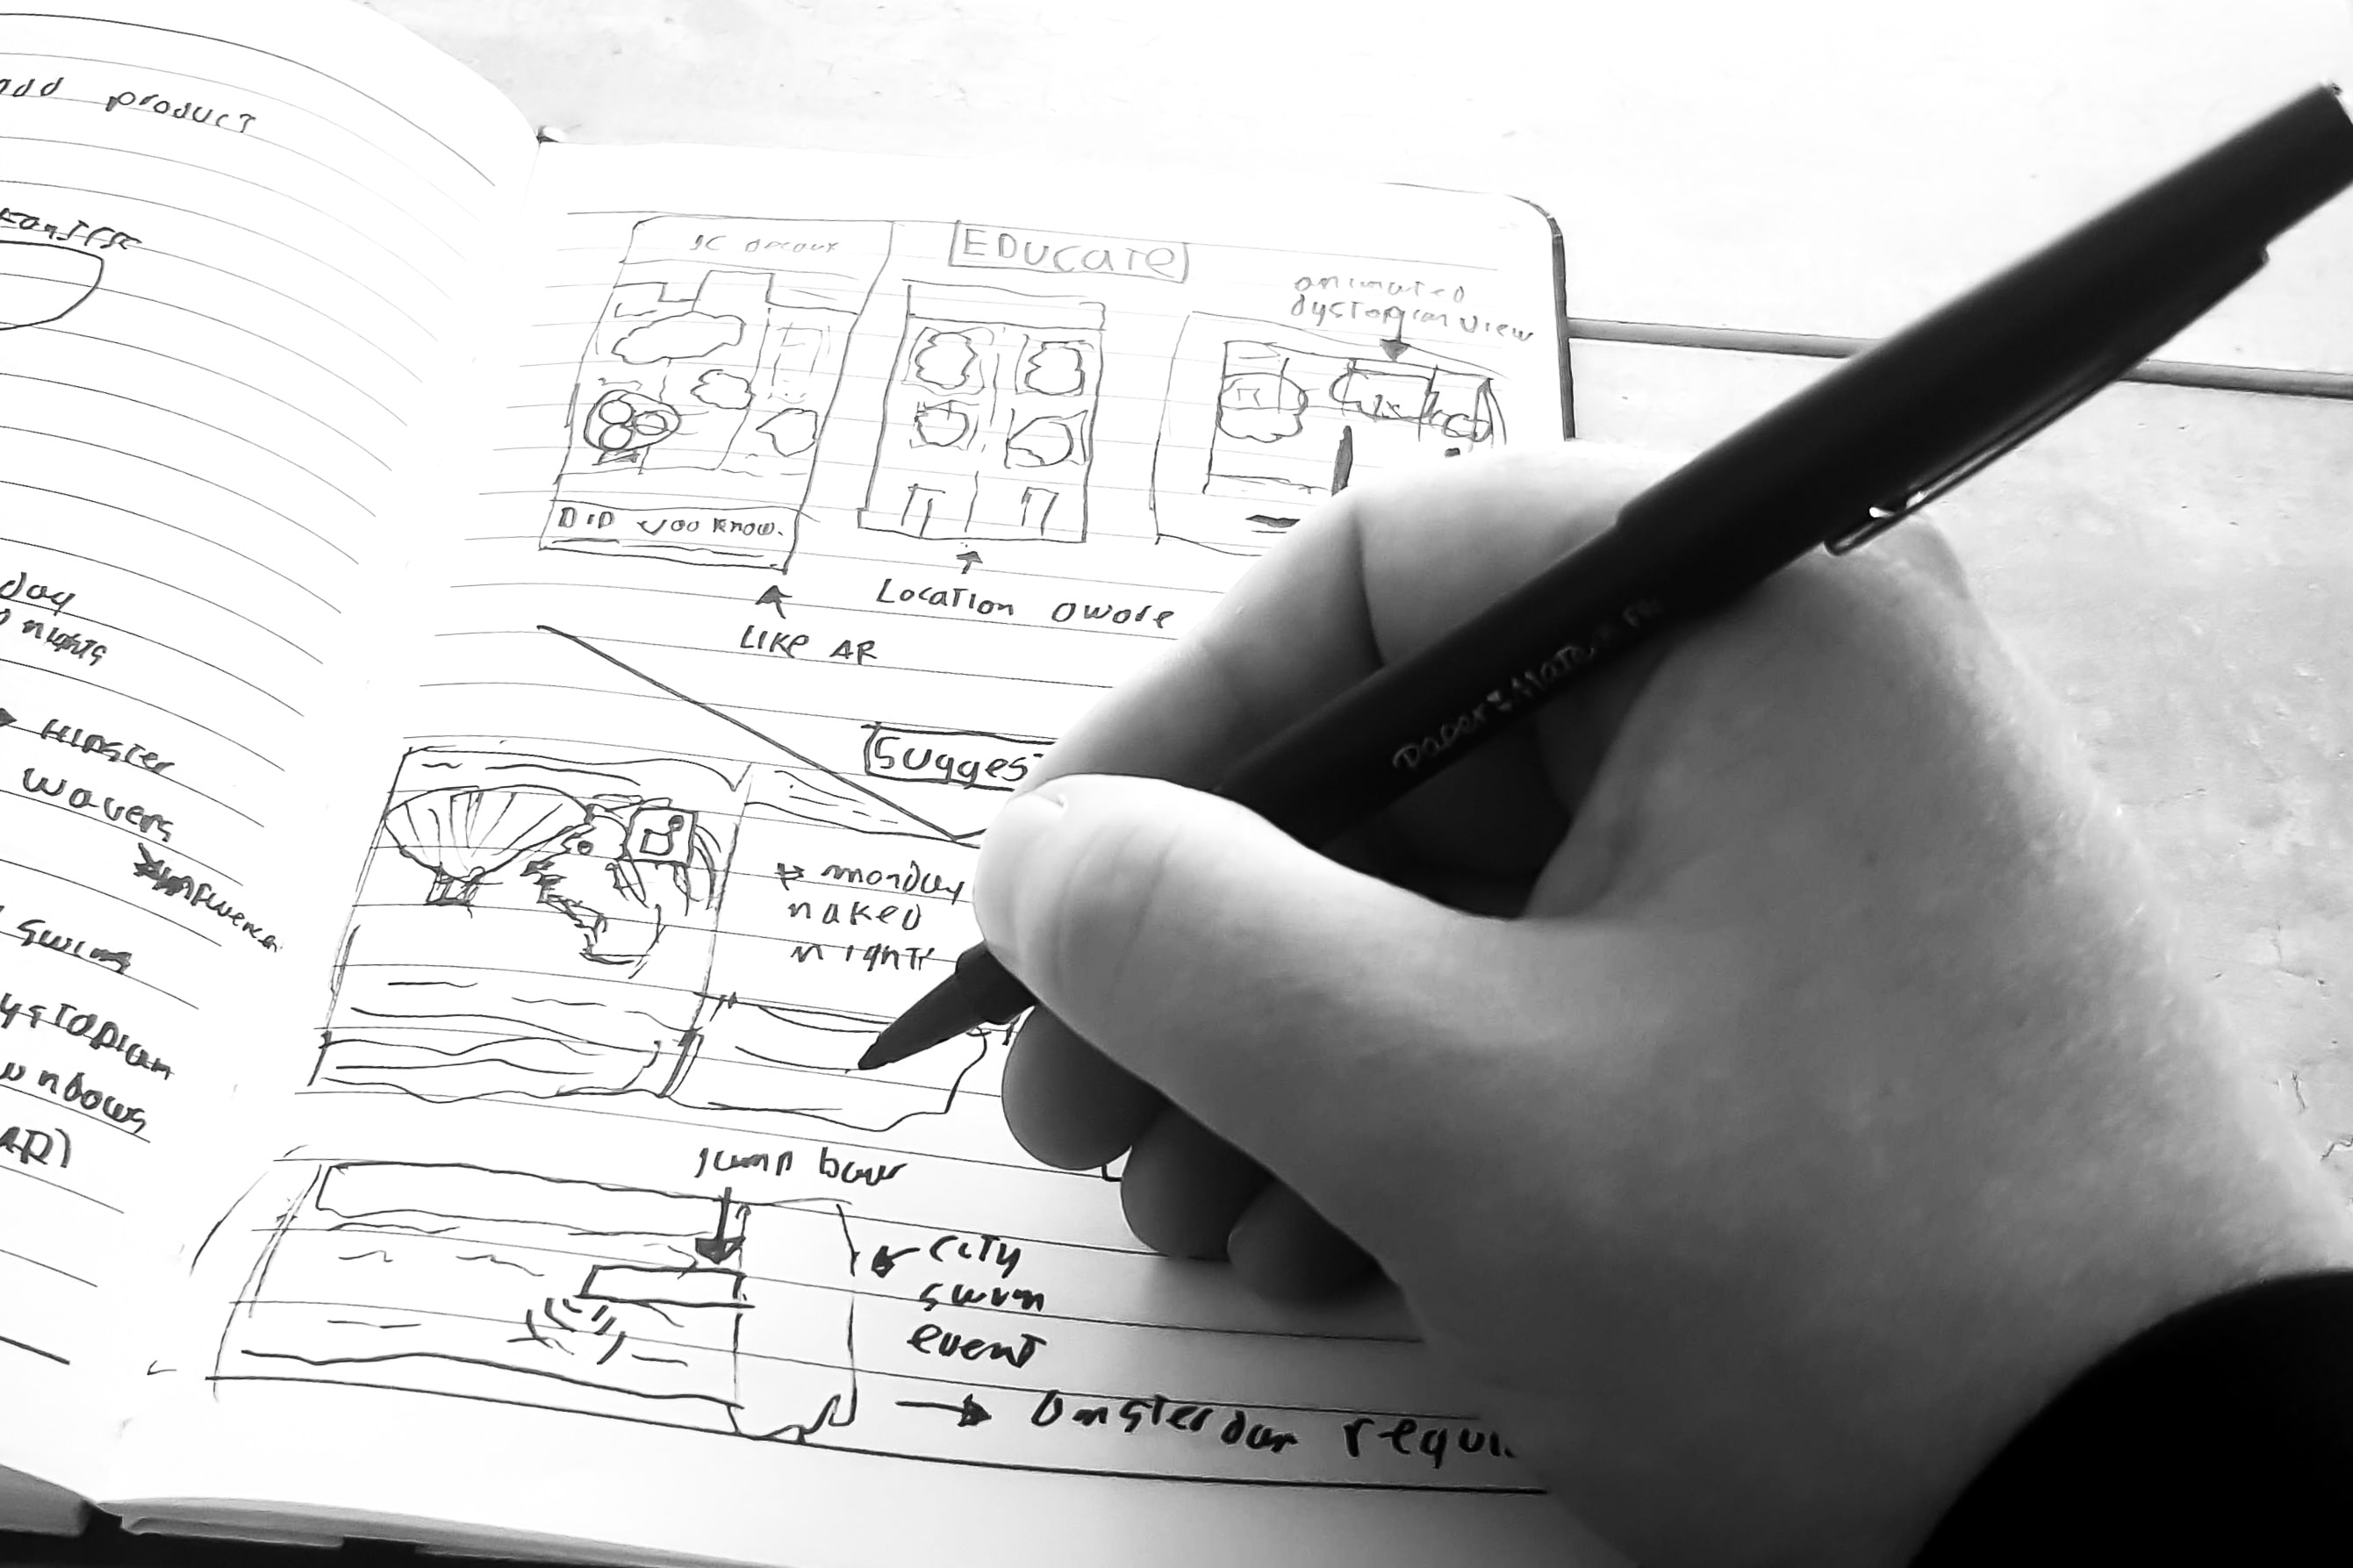 add product
day
nights
Hipster
wavers
swing
ystopian
windows
AR)
JC Decaux
EDUCATE
animated
dystopian view
DID YOU KNOW.
Location aware
LIKE AR
Sugges
monday
naked
nights
Jump
city
swim
event
Amsterdam requi
Paper:Mate